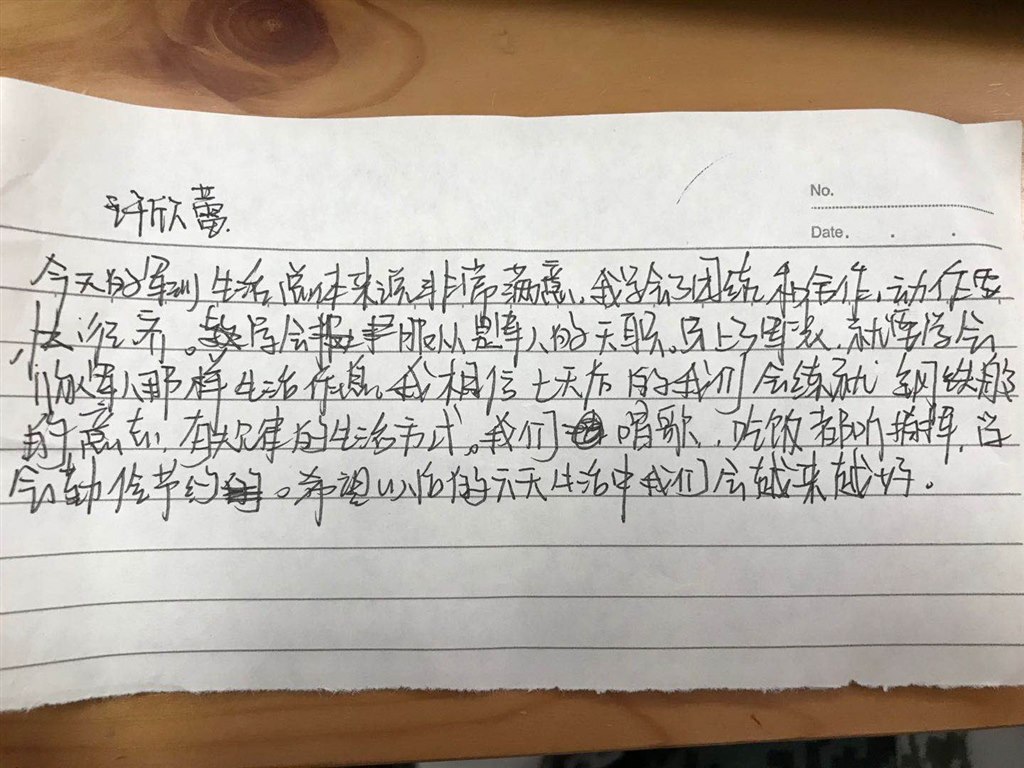 No.
许欣蕾
Date.
今天的军训生活总体来说非常满意,我学会了团结和合作,动作要
快、整齐。学会服从是军人的天职。穿上了军装,就要学会
像军人那样生活作息。我相信七天后的我们会练就钢铁般
的意志,有规律的生活方式。我们唱歌,吃饭都听指挥,学
会勤俭节约。希望以后的六天生活中我们会越来越好。